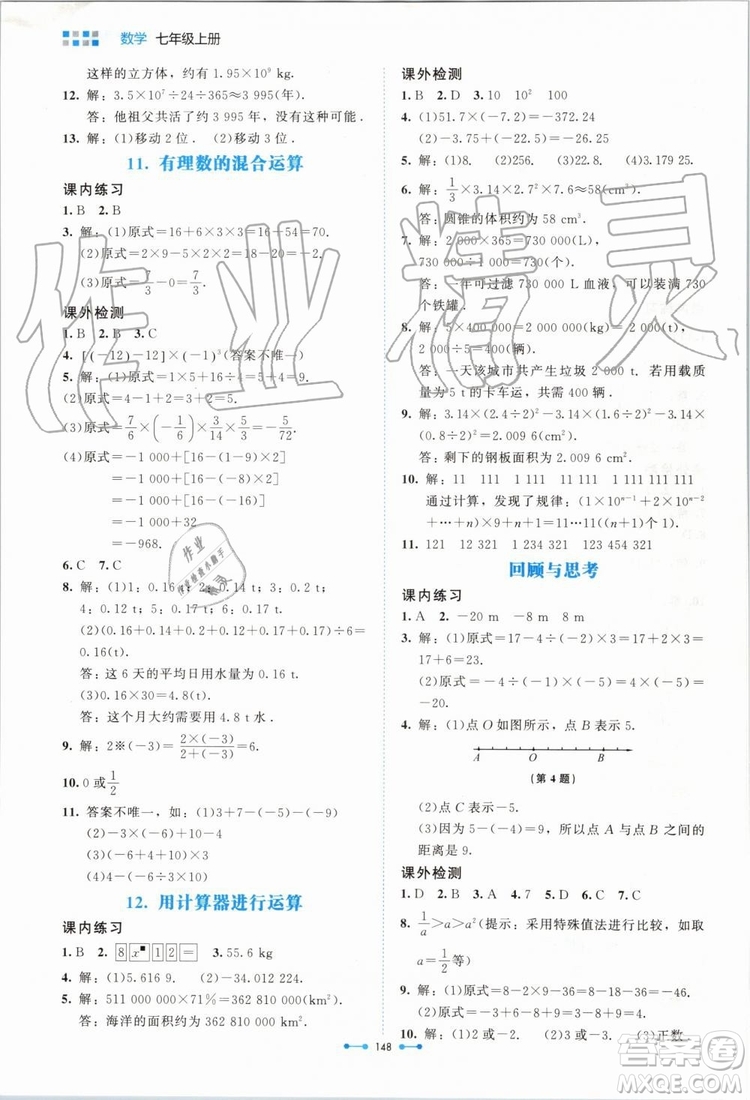 数学 七年级上册
这样的立方体，约有 1.95×10⁹ kg.
12. 解：3.5×10⁷÷24÷365≈3 995(年).
答：他祖父共活了约 3 995 年，没有这种可能.
13. 解：(1)移动 2 位. (2)移动 3 位.
11. 有理数的混合运算
课内练习
1. B 2. B
3. 解：(1)原式=16+6×3×3=16+54=70.
(2)原式=2×9-5×2×2=18-20=-2.
(3)原式=7/3-0=7/3.
课外检测
1. B 2. B 3. C
4. [(-12)-12]×(-1)³(答案不唯一)
5. 解：(1)原式=1×5+4=5+4=9.
(2)原式=4-1+2=3+2=5.
(3)原式=7/6×(-1/6)×3/14×5/3=-5/72.
(4)原式=-1 000+[16-(1-9)×2]
=-1 000+[16-(-8)×2]
=-1 000+[16-(-16)]
=-1 000+32
=-968.
6. C 7. C
8. 解：(1)0.16；0.14；0.12；0.2；0.16；0.18；1；
4；0.12；0.15；0.14
(2)(0.16+0.14+0.12+0.2+0.16+0.18)÷6=
0.16(t).
答：这 6 天的平均日用水量为 0.16 t.
(3)0.16×30=4.8(t).
答：这个月大约需用 4.8 t 水.
9. 解：2※(-3)=2×(-3)/2+(-3)=6.
10. 0 或1/2
11. 答案不唯一，如(1)3+7-(-5)-(-9)
(2)-3×(-6)+10-4
(3)-3×(-6+4)+18
(4)-6÷3×(-8)+8
12. 用计算器进行运算
课内练习
1. B 2. 8 x■ 1 2 = 3. 55.6 kg
4. 解：(1)5.616 9. (2)-34.012 224.
5. 解：511 000 000×71%=362 810 000(km²).
答：海洋的面积约为 362 810 000 km².
课外检测
1. B 2. D 3. 10 10² 100
4. (1)51.7×(-7.2)=-372.24
(2)-3.75+(-22.5)=-26.25
5. 解：(1)8. (2)256. (3)22. (4)23.
6. 解：1/3×3.14×2.96²×6.295≈58(cm³).
答：圆锥的体积约为 58 cm³.
7. 解：2 000×365=730 000(L),
730 000÷1 000=730(个).
答：一年可过滤 730 000 L 血液，可装满 730
个铁罐.
8. 解：5×400 000=2 000 000(kg)=2 000(t),
2 000÷5=400(辆).
答：一天该城市共产生垃圾 2 000 t. 若用载质
量为 5 t 的卡车运，共需 400 辆.
9. 解：3.14×(2.4÷2)²-3.14×(1.6÷2)²-3.14×
(0.8÷2)²=2.009 6(m²).
答：剩下的钢板面积为 2.009 6 m².
10. 解：11 111 1 111 11 111 111 111
通过计算，发现了规律：(1×10ⁿ⁻¹+1×10ⁿ⁻²
+…+1)×(9×n)÷(9×n)=11…11((n+1)个 1).
11. 121 12 321 1 234 321 123 454 321
回顾与思考
课内练习
1. A 2. -20 m -8 m 8 m
3. 解：(1)原式=17-4÷(-2)×3=17-(-2)×3=
17+6=23.
(2)原式=-4÷(-1)×5=4×5=20.
4. 解：(1)点 O 如图所示，点 B 表示 5.
A O B
(第 4 题)
(2)点 C 表示-5.
(3)因为 5-(-4)=9，所以点 A 与点 B 之间的
距离是 9.
课外检测
1. D 2. B 3. A 4. 7 5. D 6. D 7. B
8. 1/a>a>a²(提示：采用特殊值法进行比较，如取
a=1/2等)
9. 解：(1)原式=8-2-9=8-18=-10.
(2)原式=-9-6+1-8=-22.
10. 解：(1)2 或-2. (2)2 或-4. (3)正数.
148